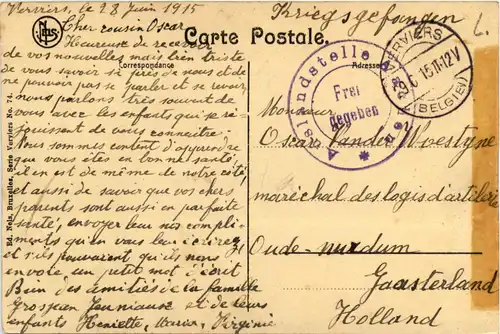 Verviers, le 28 Juin 1915
Kriegsgefangen
Cher cousin Oscar
Carte Postale.
Correspondance
Adresse
Heureuse de recevoir
de vos nouvelles mais très triste
de vous savoir si près de nous et de ne
pouvoir pas se parler et se revoir,
nous parlons très souvent de
vous avec les enfants qui se ré-
jouissent de vous connaître.
Nous sommes content d'apprendre
que vous êtes en bonne santé,
il en est de même de notre côté,
et aussi de savoir que vos chers
parents sont aussi en parfaite
santé, envoyer leur nos compli-
ments qu'en vous leur écrirez
et s'ils pouvaient qu'ils nous
envoie un petit mot d'écrit
Bien des amitiés de la famille
Grosjean et de leurs
enfants Henriette, Virginie
Ed. Nels, Bruxelles, Serie Verviers No. 74.
Auslandstelle
Frei
gegeben
VERVIERS
(BELGIEN)
Monsieur
Oscar Vande Woestyne
maréchal des logis d'artilerie
Oude-mirdum
Gaasterland
Holland